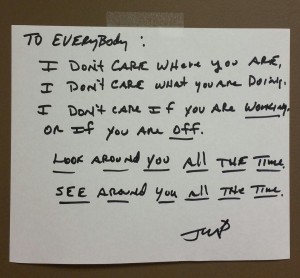 TO EVERYBODY :
I DON'T CARE WHERE YOU ARE,
I DON'T CARE WHAT YOU ARE DOING.
I DON'T CARE IF YOU ARE WORKING,
OR IF YOU ARE OFF.
LOOK AROUND YOU ALL THE TIME.
SEE AROUND YOU ALL THE TIME.